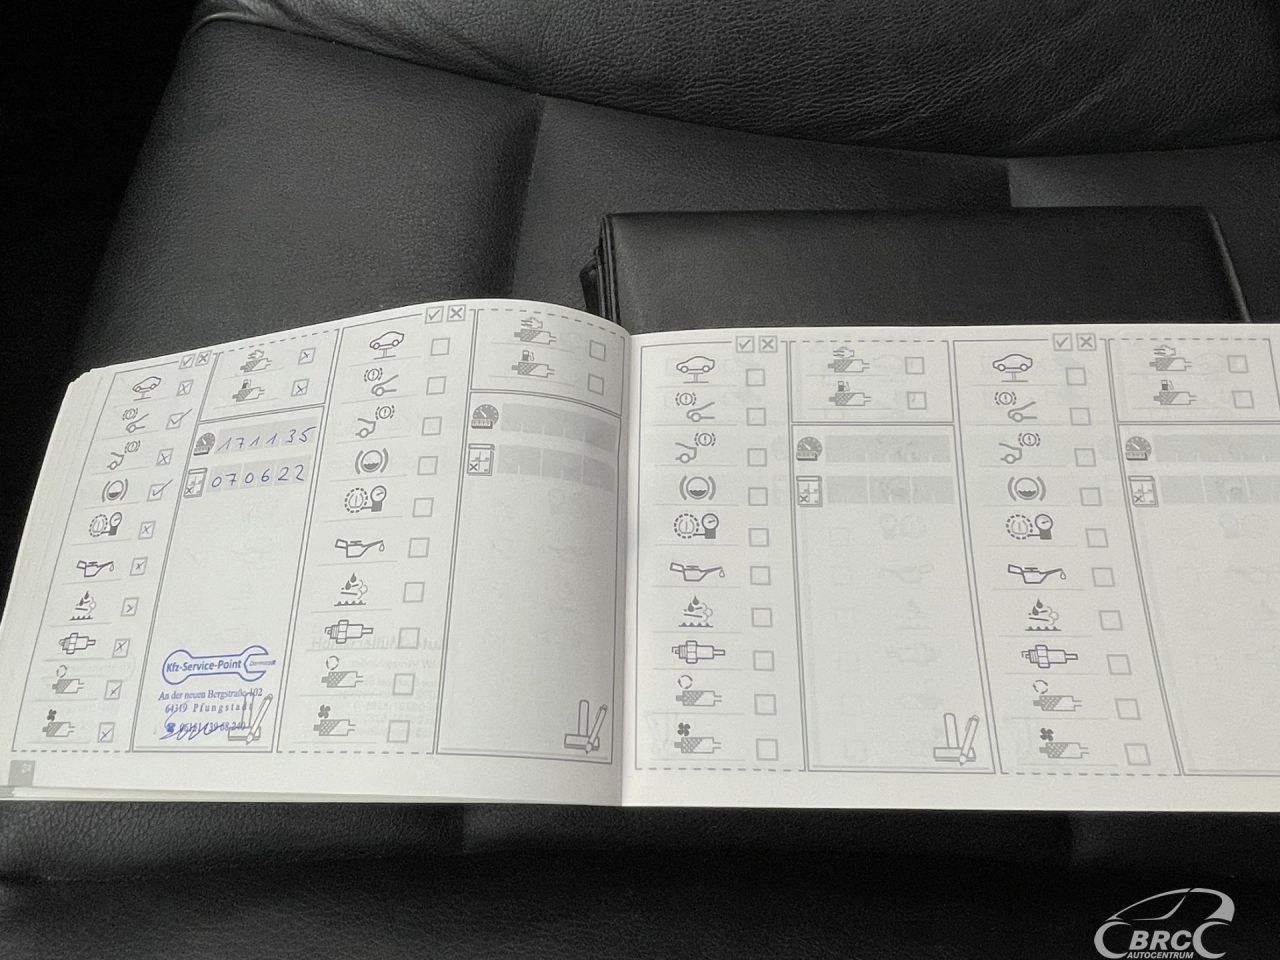 171135
070622
Kfz-Service-Point
An der neuen Bergstraße 102
64319 Pfungstadt
BRC
AUTOCENTRUM